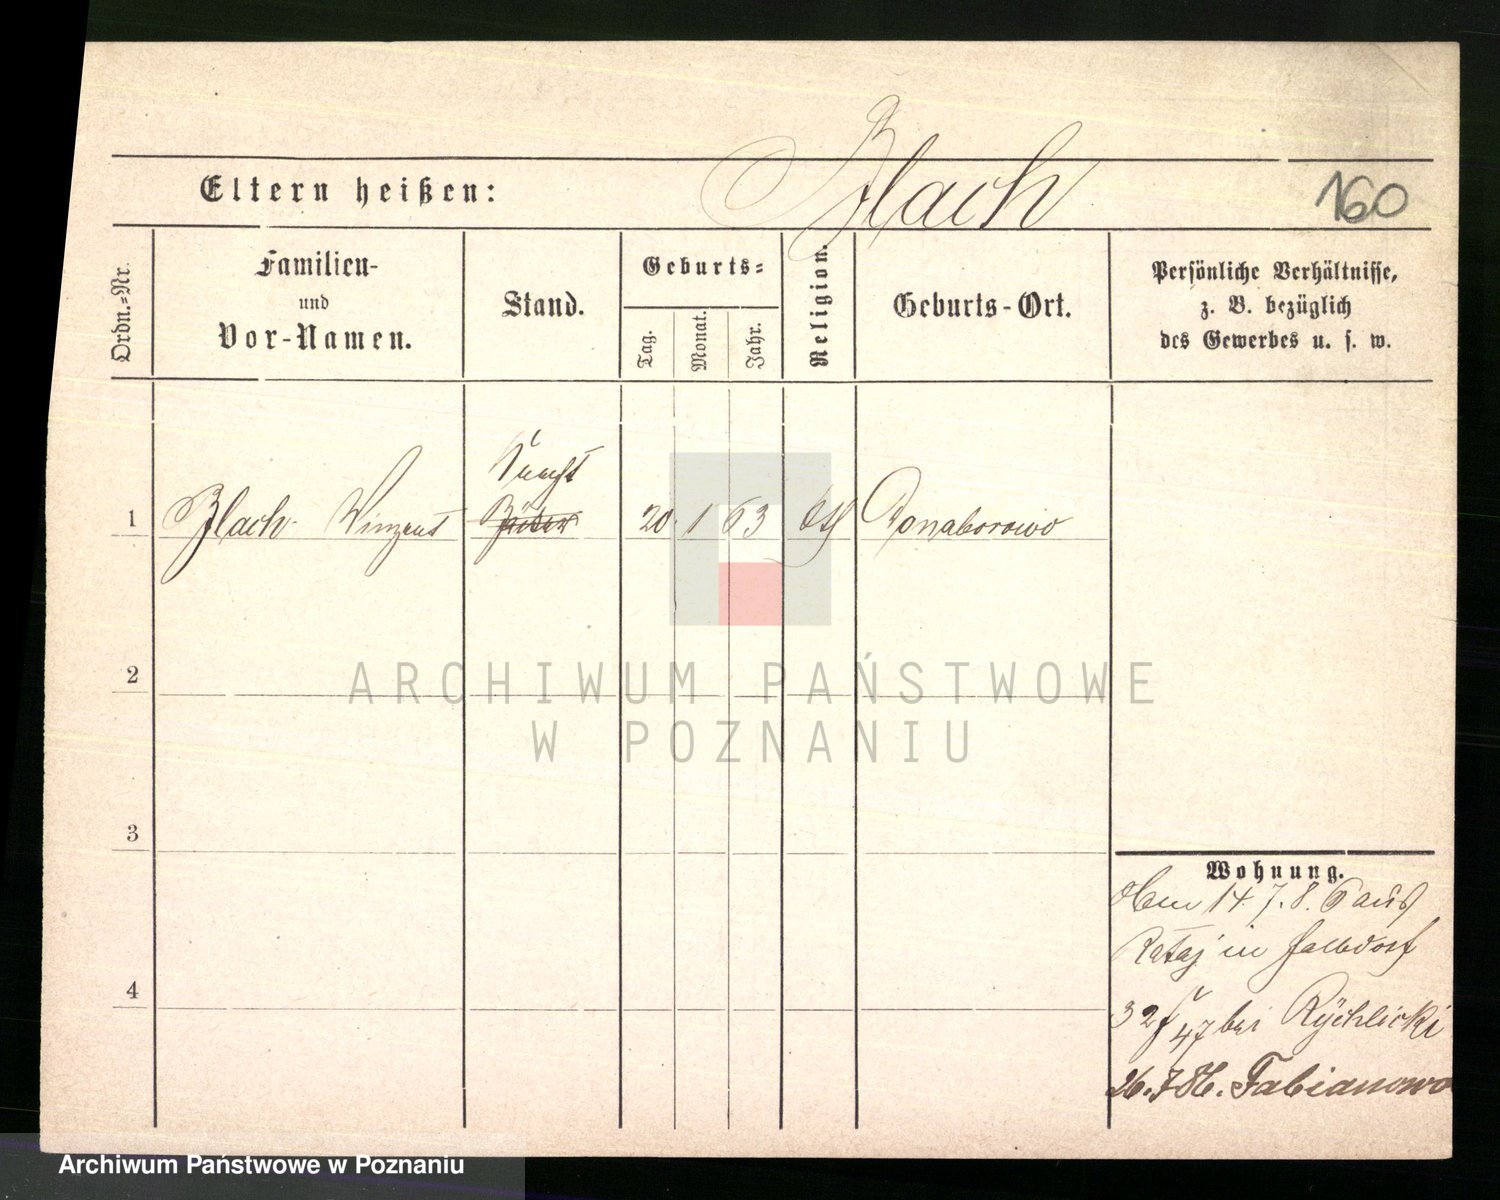 Blach
Eltern heißen:
160
Ordn.-Nr.
Familien-
und
Vor-Namen.
Stand.
Geburts-
Tag.
Monat.
Jahr.
Religion.
Geburts-Ort.
Persönliche Verhältnisse,
z. B. bezüglich
des Gewerbes u. s. w.
Knecht
1 Blach Vinzent 20. 1 63 kth
2
3
4
Wohnung.
14. 7. 86 aus
Rataj in
32/47 bei Rychlicki
26.7.86. Fabianowo
ARCHIWUM PAŃSTWOWE
W POZNANIU
Archiwum Państwowe w Poznaniu